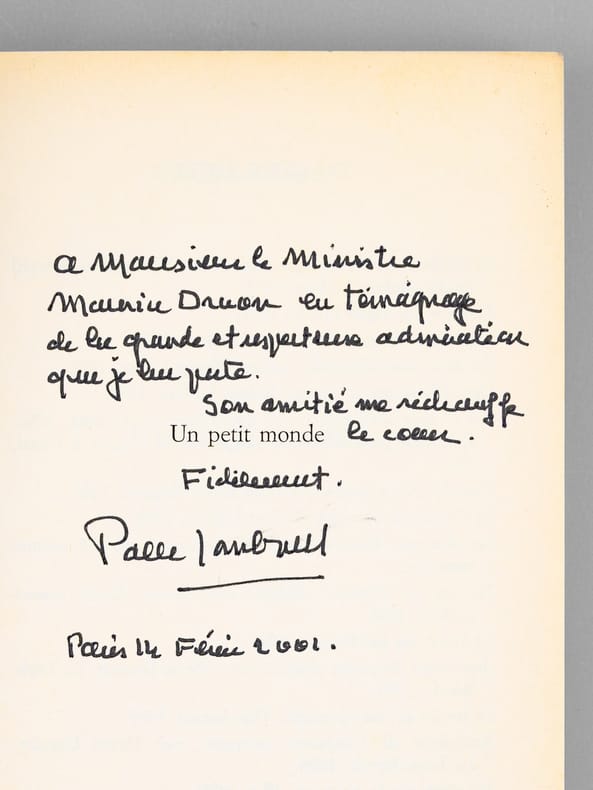 a Monsieur le Ministre
Maurice Druon en témoignage
de la grande et respectueuse admiration
que je lui porte.
Son amitié me réchauffe
Un petit monde le coeur.
Fidèlement.
Paris 14 Févier 2001.